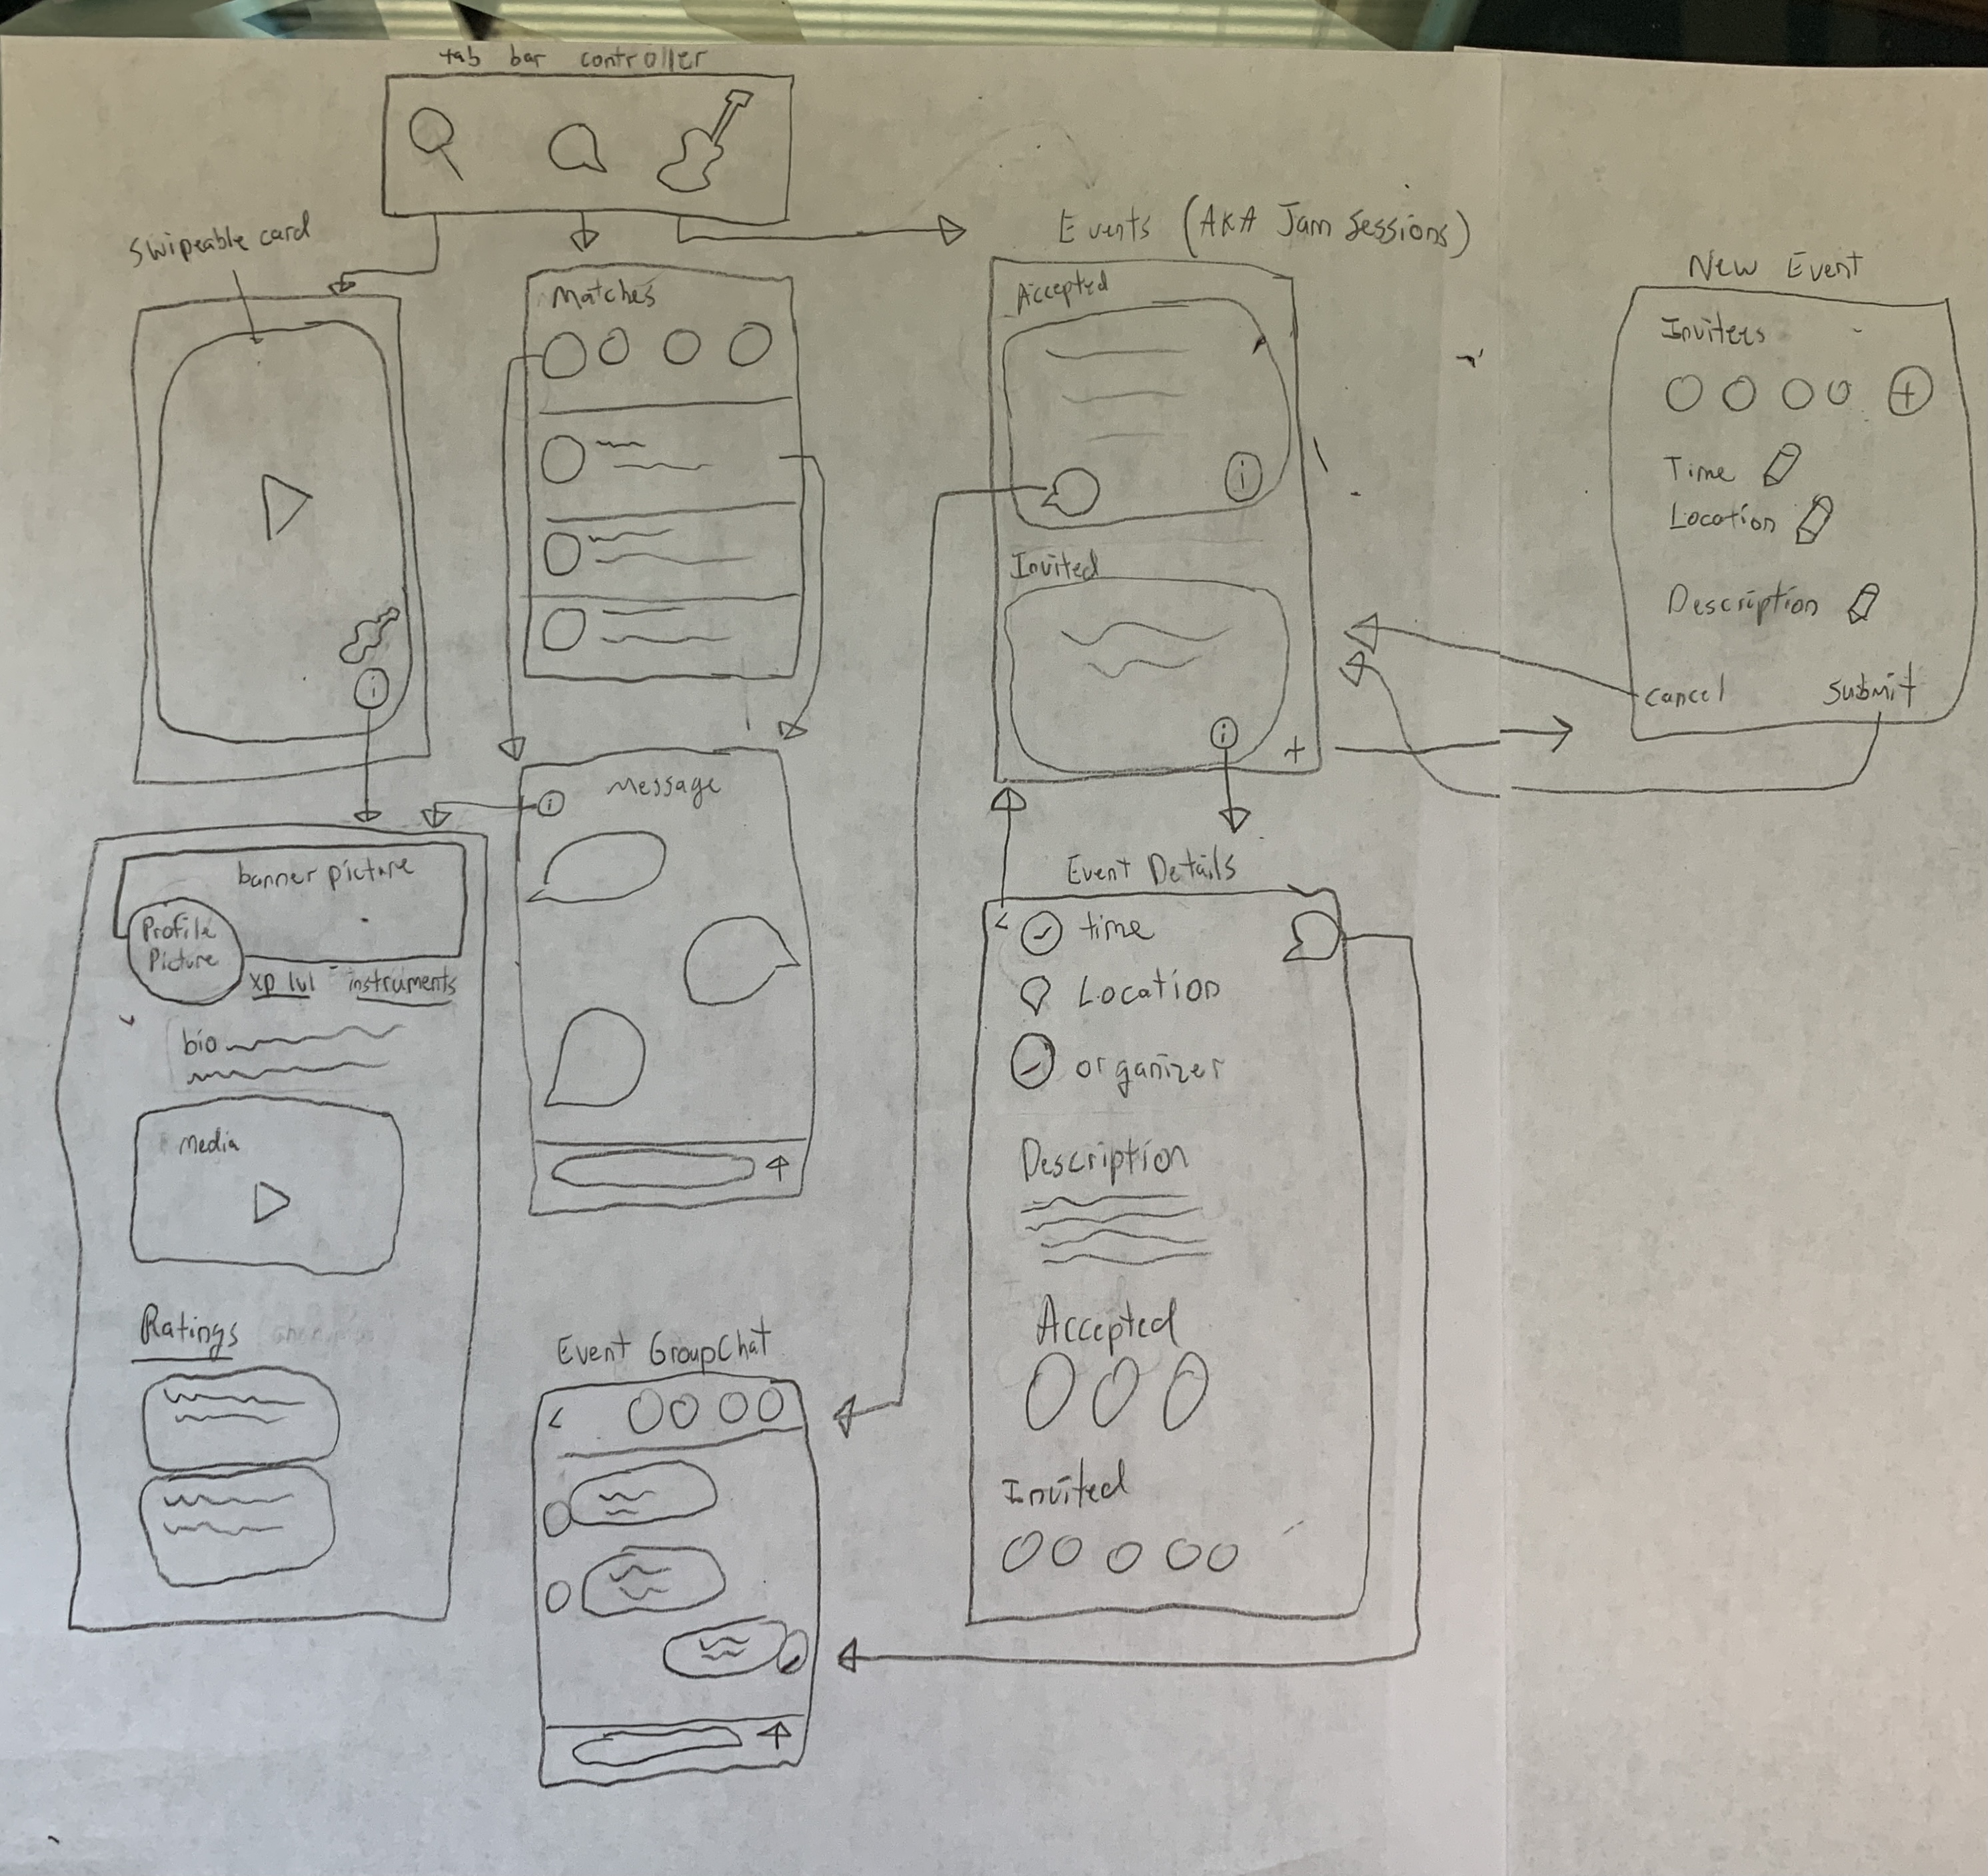 tab bar controller
swipeable card
Matches
Events (AKA Jam Sessions)
Accepted
Invited
+
New Event
Invitees
+
Time
Location
Description
cancel
submit
i
i
i
i
Message
banner picture
Profile
Picture
xp lvl
instruments
bio
Media
Ratings
Event GroupChat
<
Event Details
<
time
Location
organizer
Description
Accepted
Invited